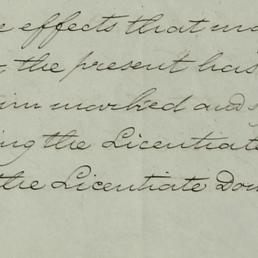 effects that
the present has
marked and
the Licentiate
the Licentiate Don